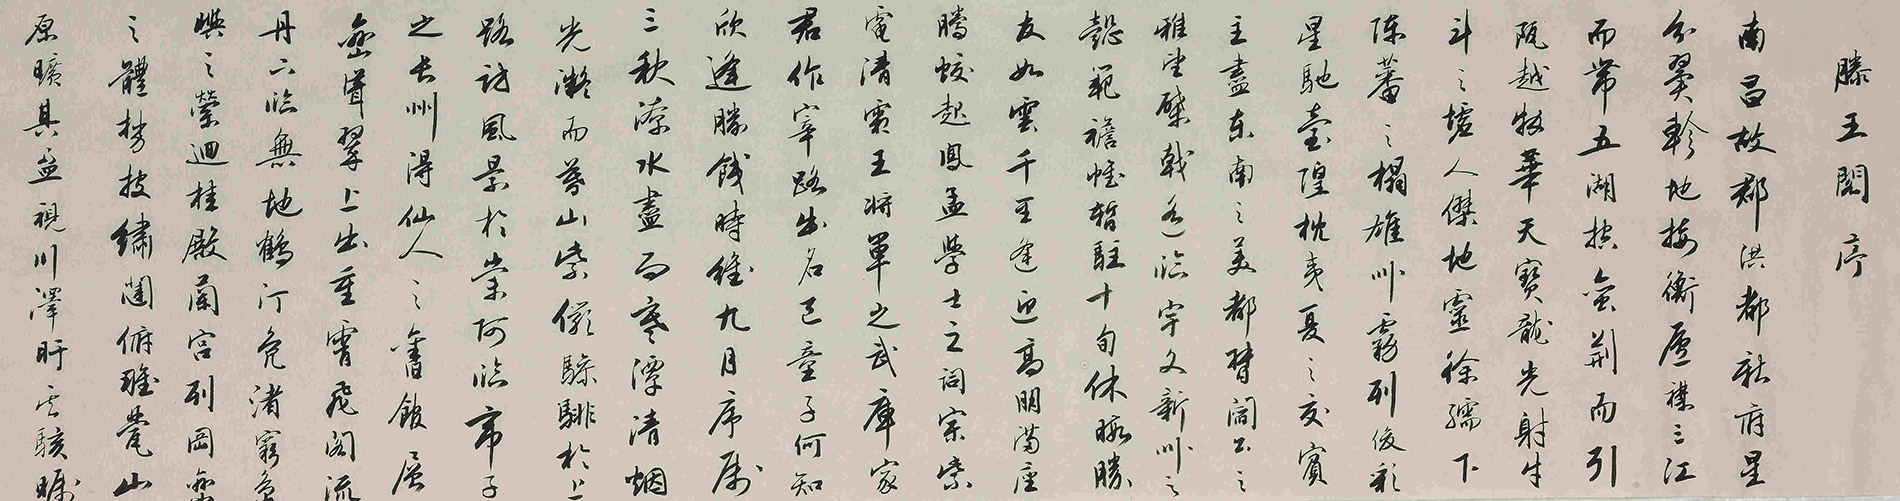 滕王閣序
南昌故郡洪都新府星
分翼軫地接衡廬襟三江
而帶五湖控蠻荊而引
甌越物華天寶龍光射牛
斗之墟人傑地靈徐孺下
陳蕃之榻雄州霧列俊彩
星馳臺隍枕夷夏之交賓
主盡東南之美都督閻公之
雅望棨戟遙臨宇文新州之
懿範襜帷暫駐十旬休暇勝
友如雲千里逢迎高朋滿座
騰蛟起鳳孟學士之詞宗紫
電清霜王將軍之武庫家
君作宰路出名區童子何知
欣逢勝餞時維九月序屬
三秋潦水盡而寒潭清烟
光凝而暮山紫儼驂騑於上
路訪風景於崇阿臨帝子
之長州得仙人之舊館層
巒聳翠上出重霄飛閣流
丹下臨無地鶴汀鳧渚窮島
嶼之縈迴桂殿蘭宮列岡巒
之體勢披繡闥俯雕甍山
原曠其盈視川澤盱其駭矚